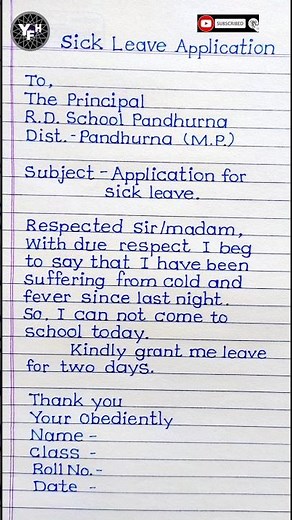 YFH
SUBSCRIBED
Sick Leave Application
To,
The Principal
R.D. School Pandhurna
Dist.-Pandhurna (M.P.)
Subject - Application for
sick leave.
Respected sir/madam,
With due respect I beg
to say that I have been
suffering from cold and
fever since last night.
So, I can not come to
school today.
Kindly grant me leave
for two days.
Thank you
Your Obediently
Name -
Class -
Roll No. -
Date -